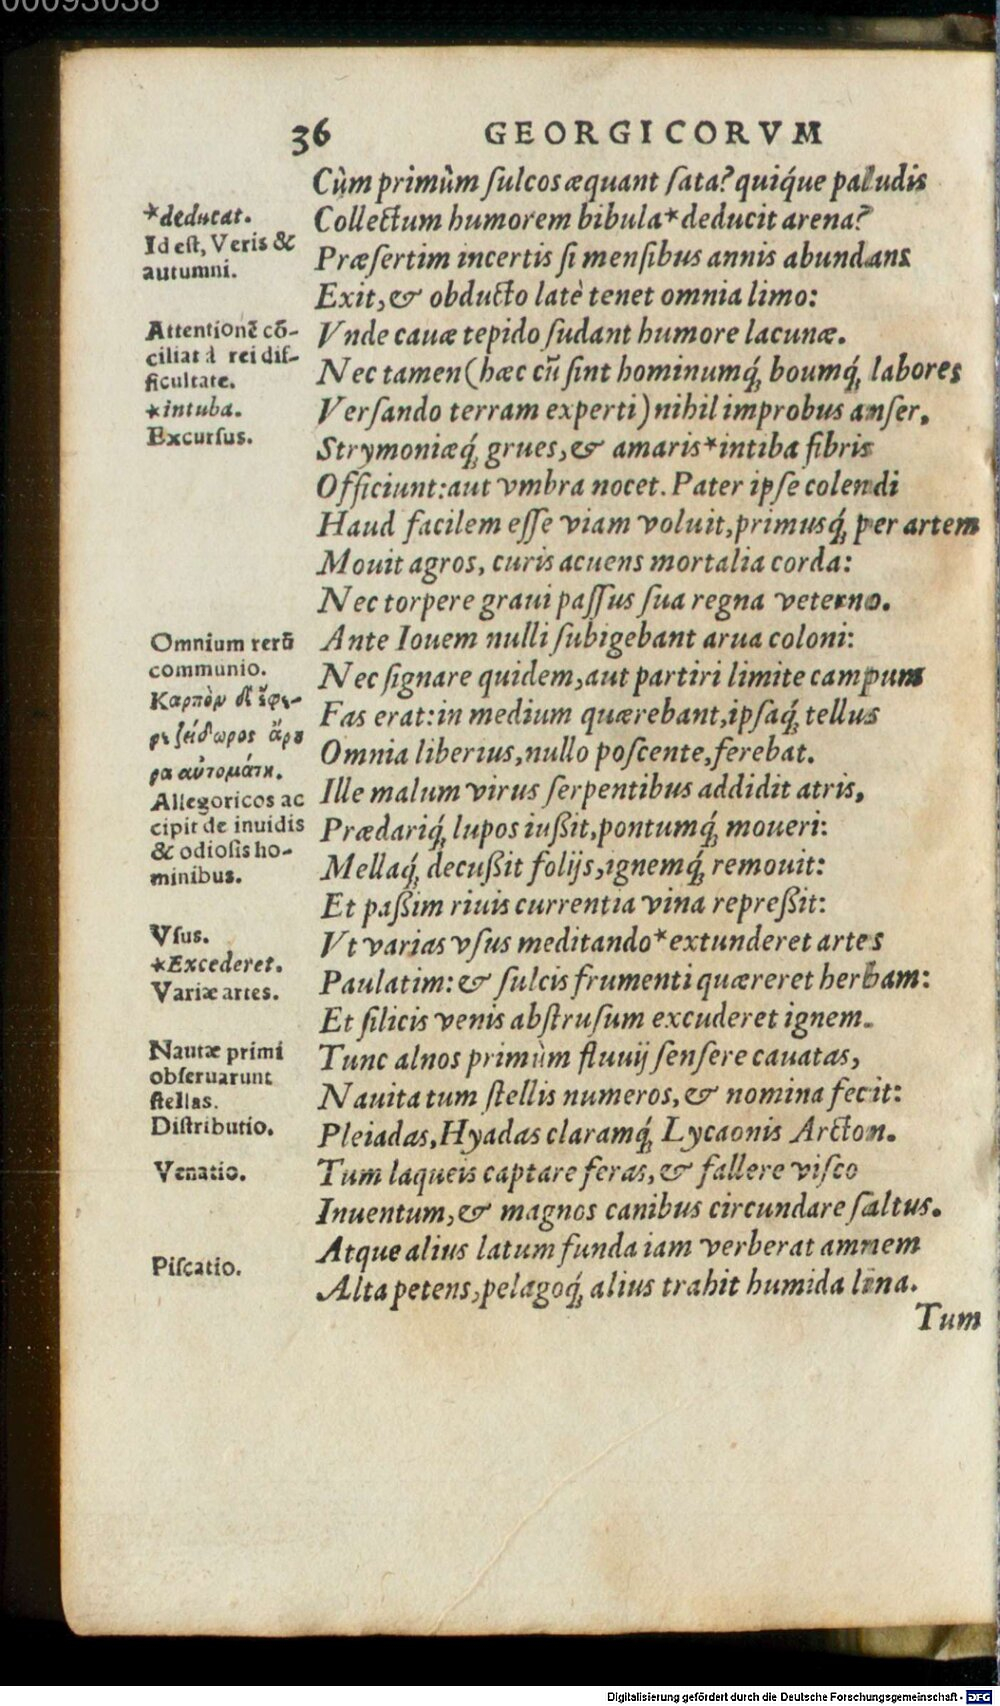 00093038
36 GEORGICORVM
Cùm primùm ſulcos æquant ſata? quiq́ue paludis
Collectum humorem bibula*deducit arena?
Præſertim incertis ſi menſibus annis abundans
Exit, & obducto latè tenet omnia limo:
Vnde cauæ tepido ſudant humore lacunæ.
Nec tamen (hæc cũ ſint hominumq́; boumq́; labores
Verſando terram experti) nihil improbus anſer,
Strymoniæq́; grues, & amaris*intiba fibris
Officiunt: aut vmbra nocet. Pater ipſe colendi
Haud facilem eſſe viam voluit, primusq́; per artem
Mouit agros, curis acuens mortalia corda:
Nec torpere graui paſſus ſua regna veterno.
Ante Iouem nulli ſubigebant arua coloni:
Nec ſignare quidem, aut partiri limite campum
Fas erat: in medium quærebant, ipſaq́; tellus
Omnia liberius, nullo poſcente, ferebat.
Ille malum virus ſerpentibus addidit atris,
Prædariq́; lupos iußit, pontumq́; moueri:
Mellaq́; decußit folijs, ignemq́; remouit:
Et paßim riuis currentia vina repreßit:
Vt varias vſus meditando*extunderet artes
Paulatim: & ſulcis frumenti quæreret herbam:
Et ſilicis venis abſtruſum excuderet ignem.
Tunc alnos primùm fluuij ſenſere cauatas,
Nauita tum ſtellis numeros, & nomina fecit:
Pleiadas, Hyadas claramq́; Lycaonis Arcton.
Tum laqueis captare feras, & fallere viſco
Inuentum, & magnos canibus circundare ſaltus.
Atque alius latum funda iam verberat amnem
Alta petens, pelagoq́; alius trahit humida lina.
Tum
*deducat.
Id eſt, Veris &
autumni.
Attentionẽ cõ-
ciliat à rei dif-
ficultate.
*intuba.
Excurſus.
Omnium rerũ
communio.
Καρπὸν δ' ἔφε-
ρε ζείδωρος ἄρου
ρα αὐτομάτη.
Allegoricos ac
cipit de inuidis
& odioſis ho-
minibus.
Vſus.
*Excederet.
Variæ artes.
Nautæ primi
obſeruarunt
ſtellas.
Diſtributio.
Venatio.
Piſcatio.
Digitalisierung gefördert durch die Deutsche Forschungsgemeinschaft - DFG